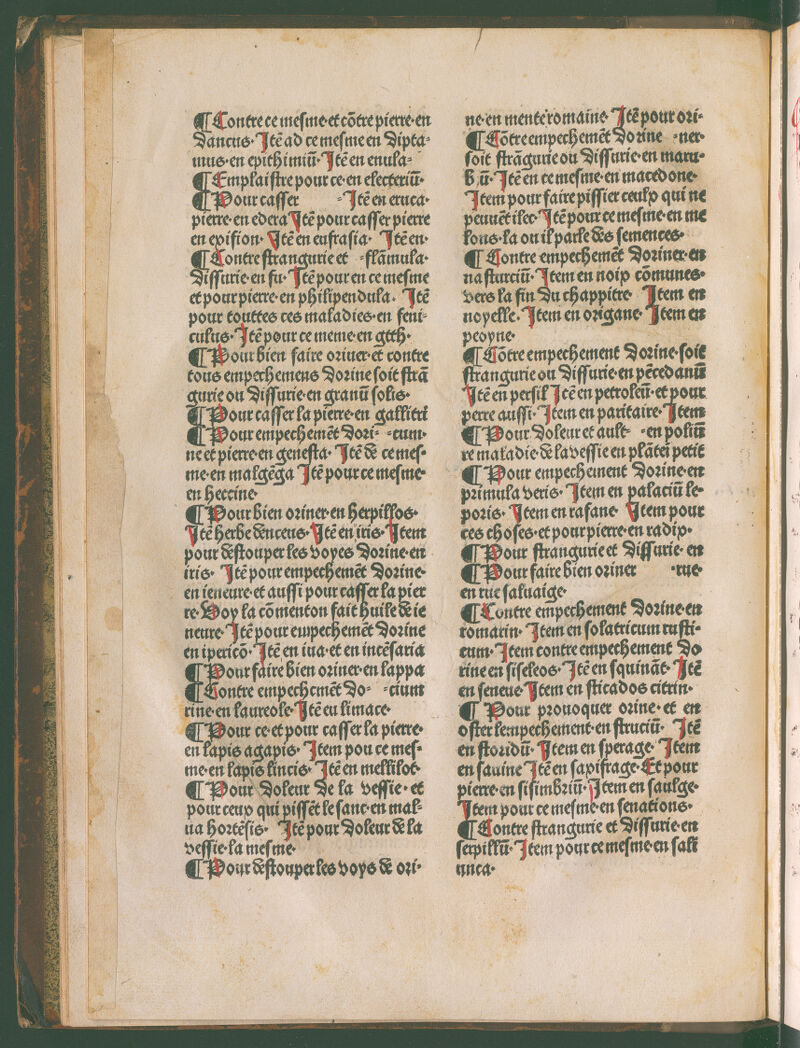 ¶ Contre ce mesme·et cõtre pierre·en
Dancus· Itẽ ad ce mesme en Dipta-
mus·en epithimiũ· Itẽ en enula-
¶ Emplaistre pour ce·en electeriũ·
¶ Pour casser -Itẽ en eruca·
pierre·en edera Itẽ pour casser pierre
en epision· Itẽ en eufrasia· Itẽ en·
¶ Contre strangurie et -flãmula·
Dissurie·en fu· Itẽ pour en ce mesme
et pour pierre·en philipendula. Itẽ
pour touttes ces maladies·en feni-
culus· Itẽ pour ce meme·en gtth·
¶ Pour bien faire oriuer·et contre
tous empechemens Dorine soit strã
gurie ou Dissurie·en granũ solis·
¶ Pour casser la pierre·en gallitri
¶ Pour empechemẽt Dori- -cum·
ne et pierre·en genesta· Itẽ de ce mes-
me·en malgẽga Itẽ pour ce mesme·
en hectine·
¶ Pour bien oriner·en herpillos·
Itẽ herbe denceus· Itẽ en iris· Item
pour destouper les voyes Dorine·en
iris· Itẽ pour empechemẽt Dorine·
en ieneure·et aussi pour casser la pier
re· Voy la cõmenton fait huile de ie
neure· Itẽ pour empechemẽt Dorine
en ipericõ· Itẽ en iua·et en incẽsaria
¶ Pour faire bien oriner·en lappa
¶ Contre empechemẽt Do- -cium
rine·en laureole· Itẽ eu limace·
¶ Pour ce·et pour casser la pierre·
en lapis agapis· Item pou ce mes-
me·en lapis lincis· Itẽ en mellilot·
¶ Pour Doleur De la vessie·et
pour ceup qui pissẽt le sanc·en mal-
ua hortẽsis· Itẽ pour Doleur de la
vessie·la mesme·
¶ Pour destouper les voys de ori·
ne·en mente romaine· Itẽ pour ori-
¶ Cõtre empechemẽt Dorine -ner·
soit strãgurie ou Dissurie·en maru-
b.ũ· Itẽ en ce mesme·en macedone·
Item pour faire pissier ceulp qui ne
peuuẽt ilec· Itẽ pour ce mesme·en me
lons·la ou il parle des semences·
¶ Contre empechemẽt Doriner·en
nasturciũ· Item en noip cõmunes·
vers la fin Du chappitre· Item en
noyelle. Item en origane· Item en
peoyne·
¶ Cõtre empechement Dorine·soit
strangurie ou Dissurie·en pẽcedanũ
Itẽ en persil Itẽ en petroleũ·et pour
perre aussi· Item en paritaire· Item
¶ Pour Doleur et ault- -en poliũ
re maladie de la vessie en plãtei petit
¶ Pour empechement Dorine·en
primula veris· Item en palaciũ le-
poris· Item en rafane· Item pour
ces choses·et pour pierre·en radip·
¶ Pour strangurie et Dissurie· en
¶ Pour faire bien oriner -rue·
en rue saluaige·
¶ Contre empechement Dorine·en
romarin· Item en solatricum rusti-
cum· Item contre empechement Do
rine en siseleos· Itẽ en squinãt· Itẽ
en seneue· Item en sticados citrin·
¶ Pour prouoquer orine·et en
oster lempechement·en struciũ· Itẽ
en storidũ· Item en sperage· Item
en sauine Itẽ en sapifrage· Et pour
pierre·en sisimbriũ· Item en saulge·
Item pour ce mesme·en senations·
¶ Contre strangurie et Dissurie·en
serpillũ· Item pour ce mesme·en sali
unca·